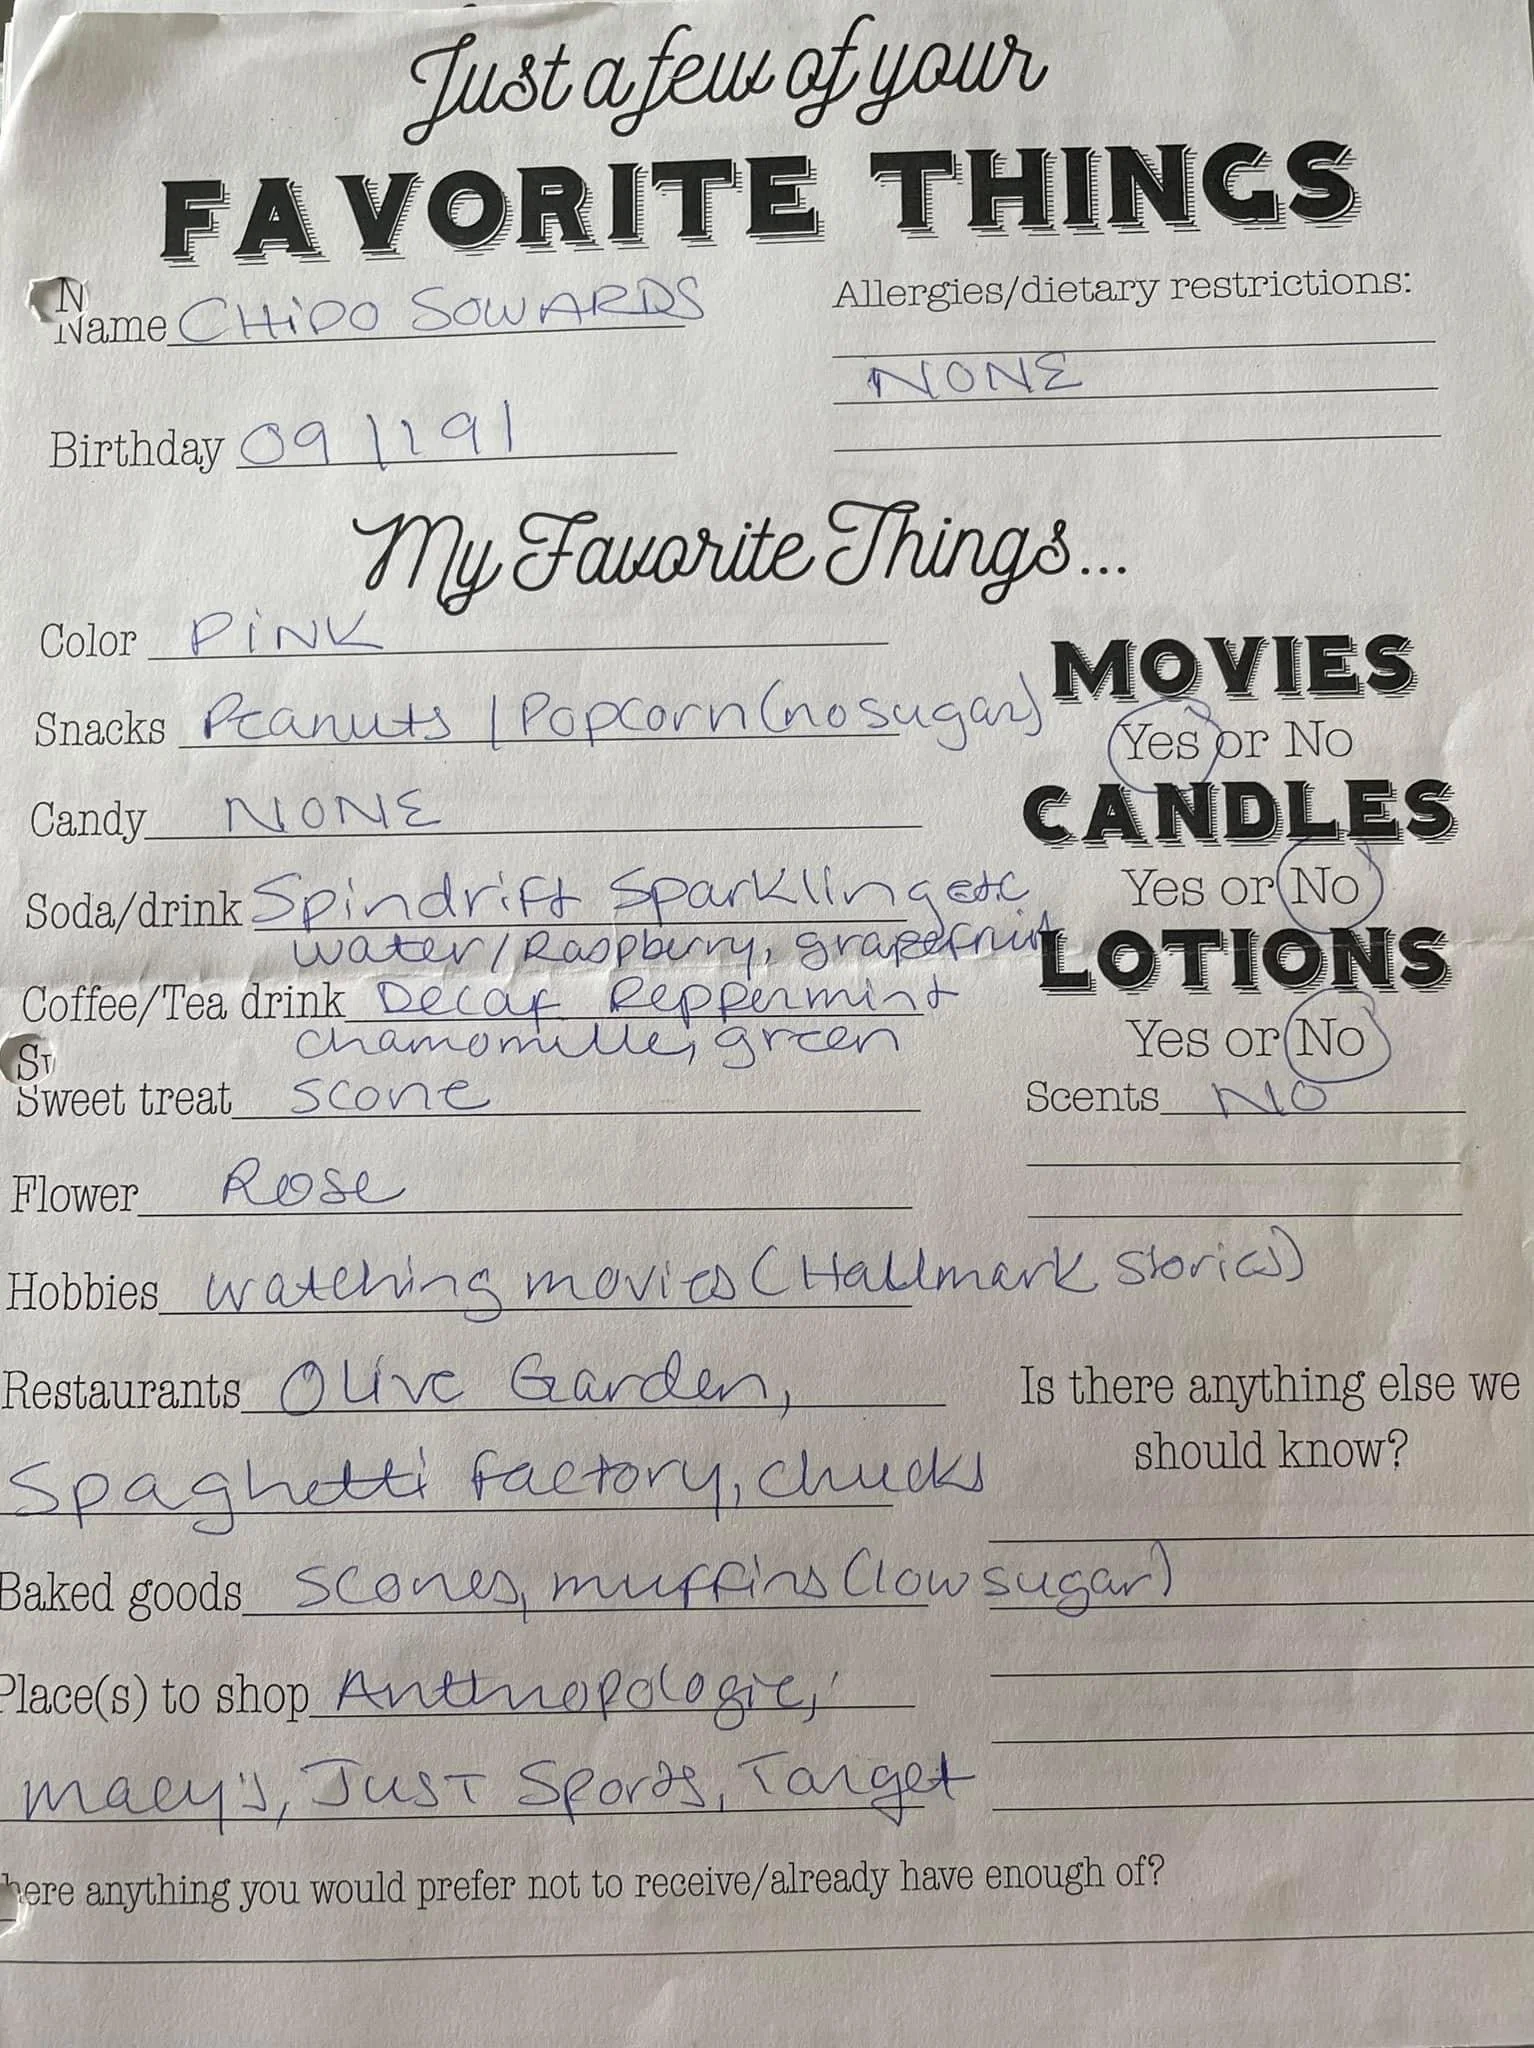 Just a few of your
FAVORITE THINGS
Name CHIDO SOWARDS
Allergies/dietary restrictions:
NONE
Birthday 09/19/
My Favorite Things...
Color PINK
Snacks Peanuts / Popcorn (no sugar)
Candy NONE
Soda/drink Spindrift Sparkling etc
water/Raspberry, grapefruit
Coffee/Tea drink Decaf Peppermint
chamomille, green
Sweet treat scone
Flower Rose
Hobbies watching movies (Hallmark Stories)
Restaurants Olive Garden,
Spaghetti factory, chucks
Baked goods scones, muffins (low sugar)
Place(s) to shop Anthropologie,
Macy's, JUST Sports, Target
MOVIES
Yes or No
CANDLES
Yes or No
LOTIONS
Yes or No
Scents NO
Is there anything else we
should know?
here anything you would prefer not to receive/already have enough of?